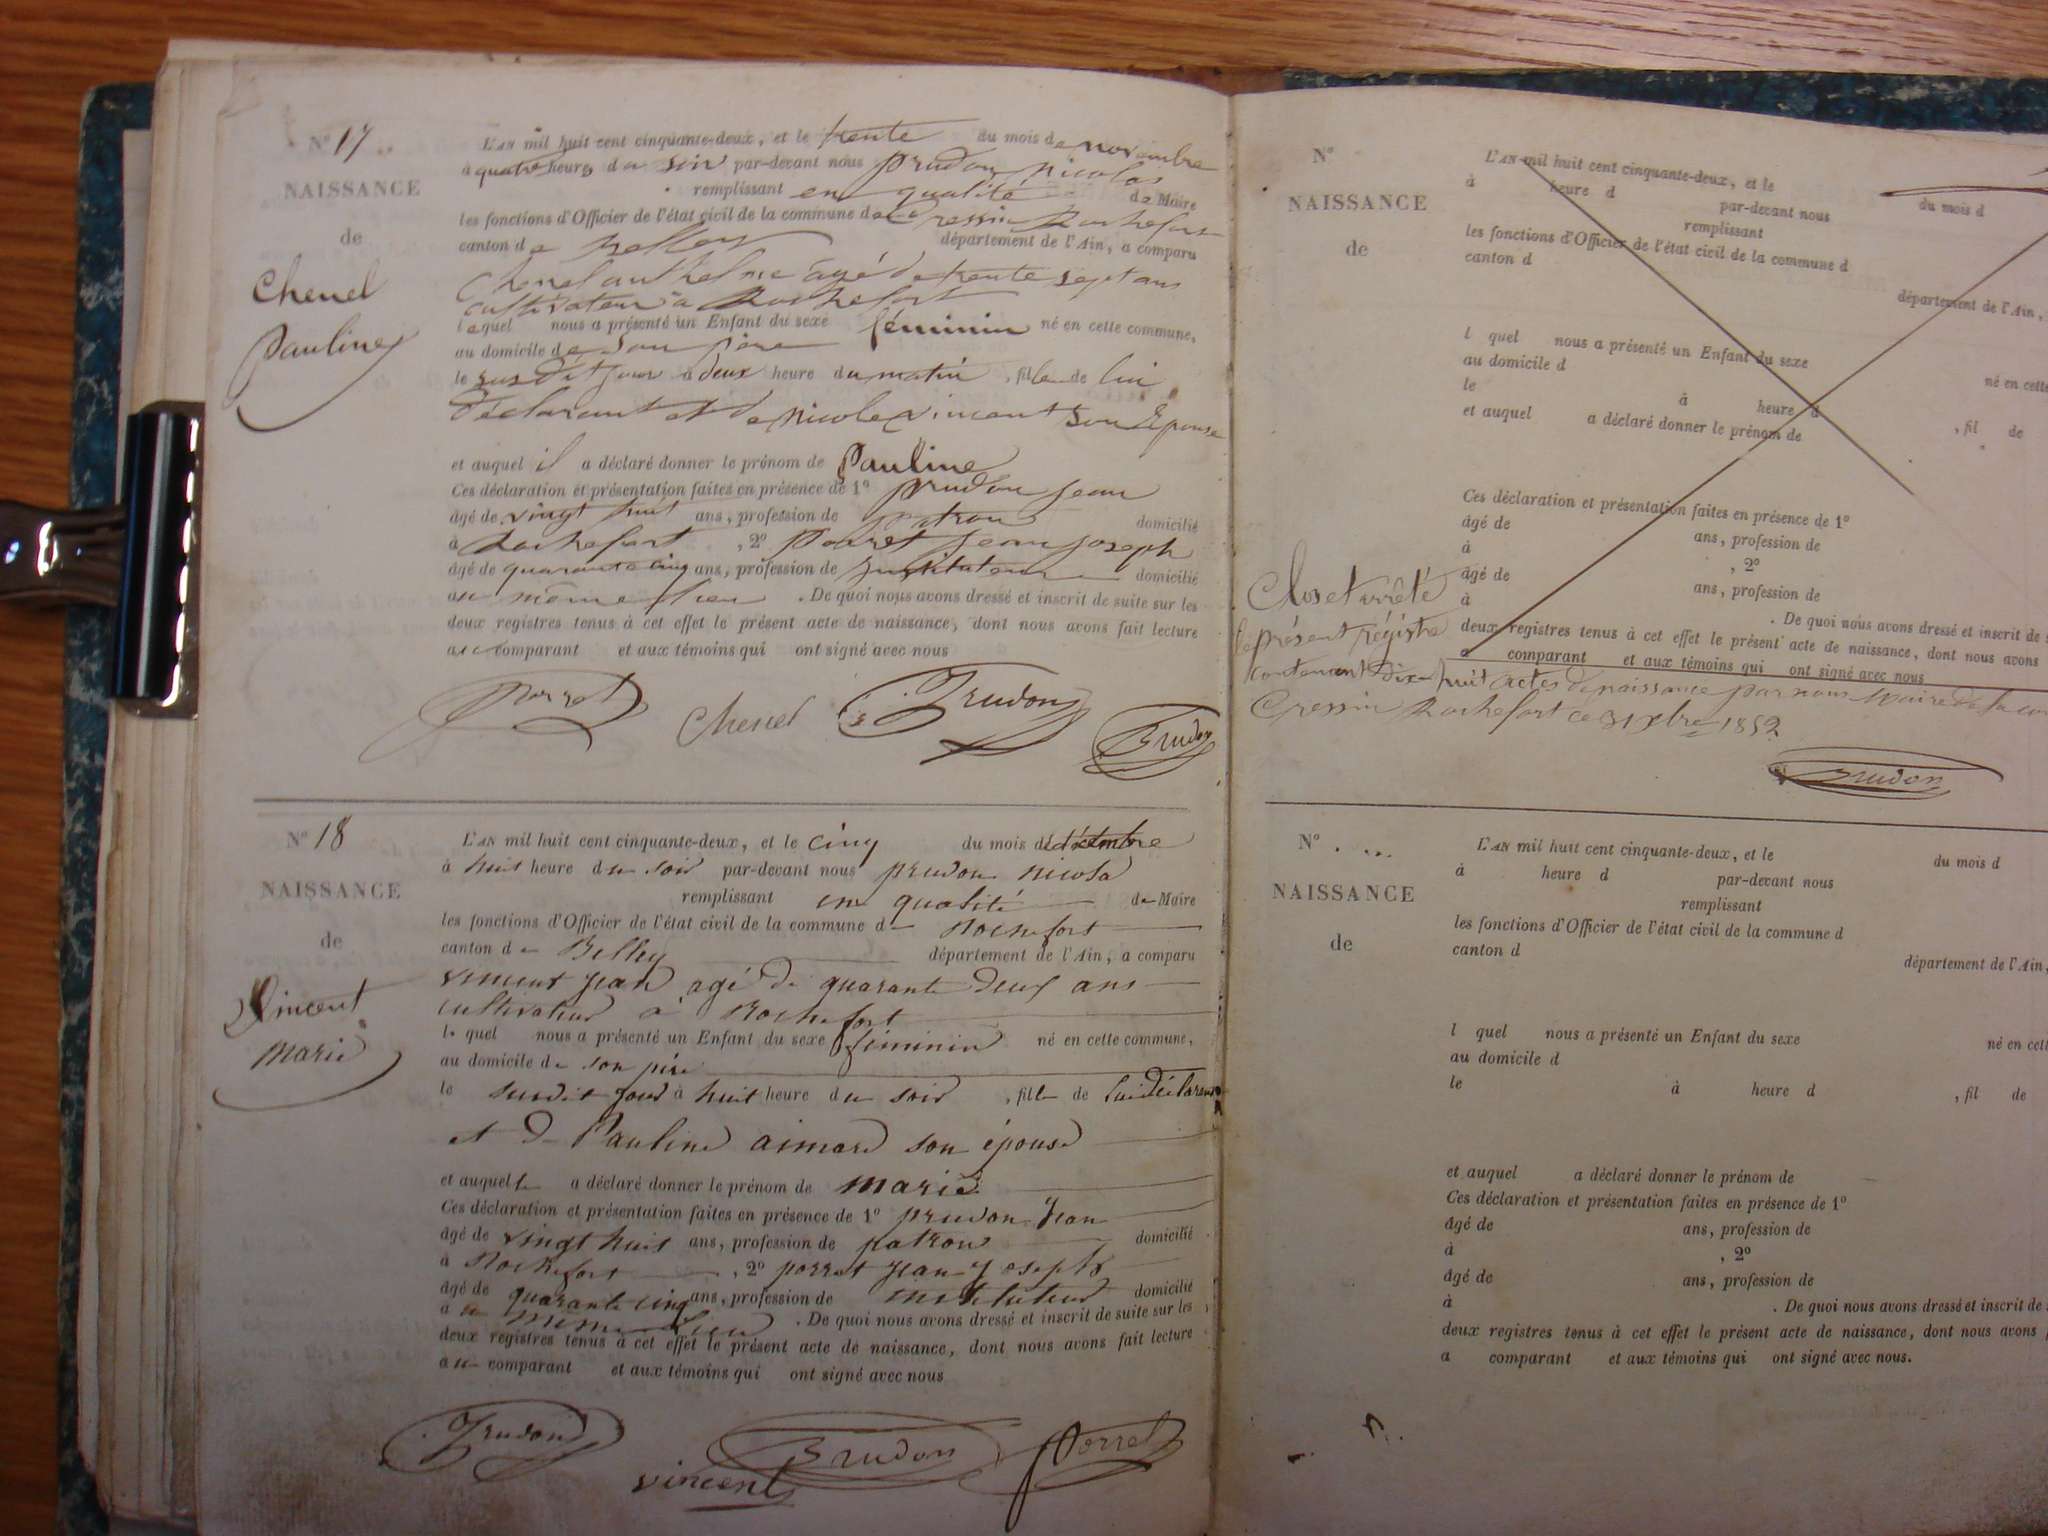 N° 17
NAISSANCE
de
Chenel
Pauline
L'AN mil huit cent cinquante-deux, et le trente du mois de novembre
à quatre heures du soir par-devant nous prudon nicolas
remplissant en qualité de Maire
les fonctions d'Officier de l'état civil de la commune de Cressin Rochefort
canton de Belley département de l'Ain, a comparu
Chenel anthelme agé de trente sept ans
cultivateur à Rochefort
lequel nous a présenté un Enfant du sexe féminin né en cette commune,
au domicile de son père
le susdit jour à deux heure du matin , fille de lui
déclarant et de nicole vincent son Epouse
et auquel il a déclaré donner le prénom de Pauline
Ces déclaration et présentation faites en présence de 1° prudon jean
âgé de vingt huit ans, profession de patron domicilié
à Rochefort , 2° Porret jean joseph
âgé de quarante cinq ans, profession de instituteur domicilié
au même lieu . De quoi nous avons dressé et inscrit de suite sur les
deux registres tenus à cet effet le présent acte de naissance, dont nous avons fait lecture
au comparant et aux témoins qui ont signé avec nous
Porret Chenel Prudon Prudon
N° 18
NAISSANCE
de
Vincent
marie
L'AN mil huit cent cinquante-deux, et le cinq du mois de décembre
à huit heure du soir par-devant nous prudon nicola
remplissant en qualité de Maire
les fonctions d'Officier de l'état civil de la commune de Rochefort
canton de Belley département de l'Ain, a comparu
vincent jean agé de quarante deux ans
cultivateur à Rochefort
le quel nous a présenté un Enfant du sexe féminin né en cette commune,
au domicile de son père
le susdit jour à huit heure du soir , fille de lui déclarant
et de Pauline aimard son épouse
et auquel le a déclaré donner le prénom de marie
Ces déclaration et présentation faites en présence de 1° prudon jean
âgé de vingt huit ans, profession de patron domicilié
à Rochefort , 2° porret jean joseph
âgé de quarante cinq ans, profession de instituteur domicilié
au même lieu . De quoi nous avons dressé et inscrit de suite sur les
deux registres tenus à cet effet le présent acte de naissance, dont nous avons fait lecture
au comparant et aux témoins qui ont signé avec nous
Prudon vincent Prudon Porret
N°
NAISSANCE
de
L'AN mil huit cent cinquante-deux, et le du mois d
à heure d par-devant nous
remplissant
les fonctions d'Officier de l'état civil de la commune d
canton d département de l'Ain,
l quel nous a présenté un Enfant du sexe né en cette
au domicile d
le à heure d , fil de
et auquel a déclaré donner le prénom de
Ces déclaration et présentation faites en présence de 1°
âgé de ans, profession de
à , 2°
âgé de ans, profession de
à . De quoi nous avons dressé et inscrit de
deux registres tenus à cet effet le présent acte de naissance, dont nous avons
a comparant et aux témoins qui ont signé avec nous
Clos et arrêté
le présent régistre
contenant dix-huit actes de naissance par nous Maire de la
Cressin Rochefort ce 31 xbre 1852
Prudon
N°
NAISSANCE
de
L'AN mil huit cent cinquante-deux, et le du mois d
à heure d par-devant nous
remplissant
les fonctions d'Officier de l'état civil de la commune d
canton d département de l'Ain,
l quel nous a présenté un Enfant du sexe né en cett
au domicile d
le à heure d , fil de
et auquel a déclaré donner le prénom de
Ces déclaration et présentation faites en présence de 1°
âgé de ans, profession de
à , 2°
âgé de ans, profession de
à . De quoi nous avons dressé et inscrit de
deux registres tenus à cet effet le présent acte de naissance, dont nous avons
a comparant et aux témoins qui ont signé avec nous.